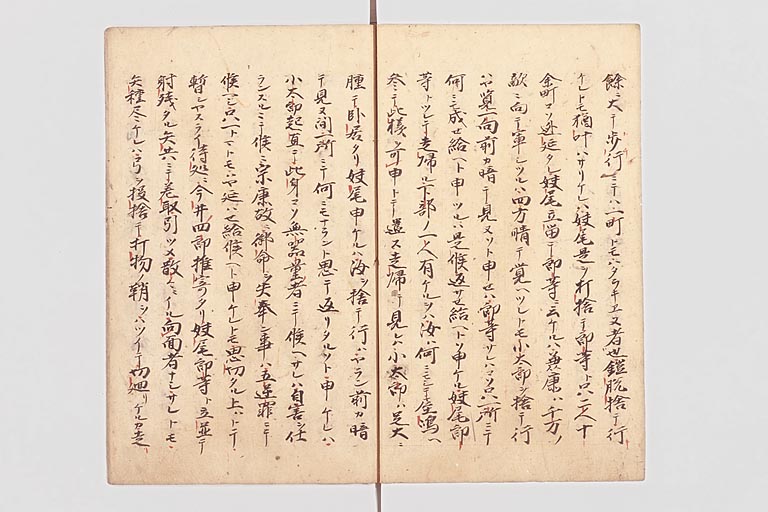 餘ニ大テ歩行ニテハ一町トモハタラキエヌ者也鎧脱捨テ行
ケレトモ猶叶ハサリケレハ妓尾是ヲ打捨テ郎等ト只二人十
余町コソ逃延タレ妓尾立留テ郎等ニ云ケルハ兼康ハ千万ノ
敵ニ向テ軍シツルハ四方晴テ覚ヘツレトモ小太郎ヲ捨テ行
ハ一向前カ暗テ見ヌソト申セハ郎等サレハコソ只一所ニテ
何ニモ成セ給ヘト申ツルハ是候返サセ給ヘトソ申ケル妓尾郎
等トツレテ走帰ル下部ノ一人有ケルヲハ汝ハ何ニモシテ屋嶋ヘ
参テ此様ヲ可申トテ遣ス走帰テ見レハ小太郎ハ足大ニ
腫テ臥居タリ妓尾申ケルハ汝ヲ捨テ行ハヤラン前カ暗
テ見ヌ間一所ニテ何ニモナラント思テ返リタルソト申ケレハ
小太郎起直テ此身コソ無器量者ニテ候ヘサレハ自害ヲ仕
ランスルニテ候ニ宗康故ニ御命ヲ失奉ン事ハ五逆罪ニテ
候ヘシ只一トマトモハヤ延ハセ給候ヘト申ケレトモ思切タル上ハトテ
暫シヤスライ待処ニ今井四郎推寄タリ妓尾郎等ト立並テ
射残タル矢共ニテ差取引ツメ散々ニイル向面者ナシサレトモ
矢種尽ニケレハ弓ヲ投捨テ打物ノ鞘ヲハツイテ切廻リケルカ走